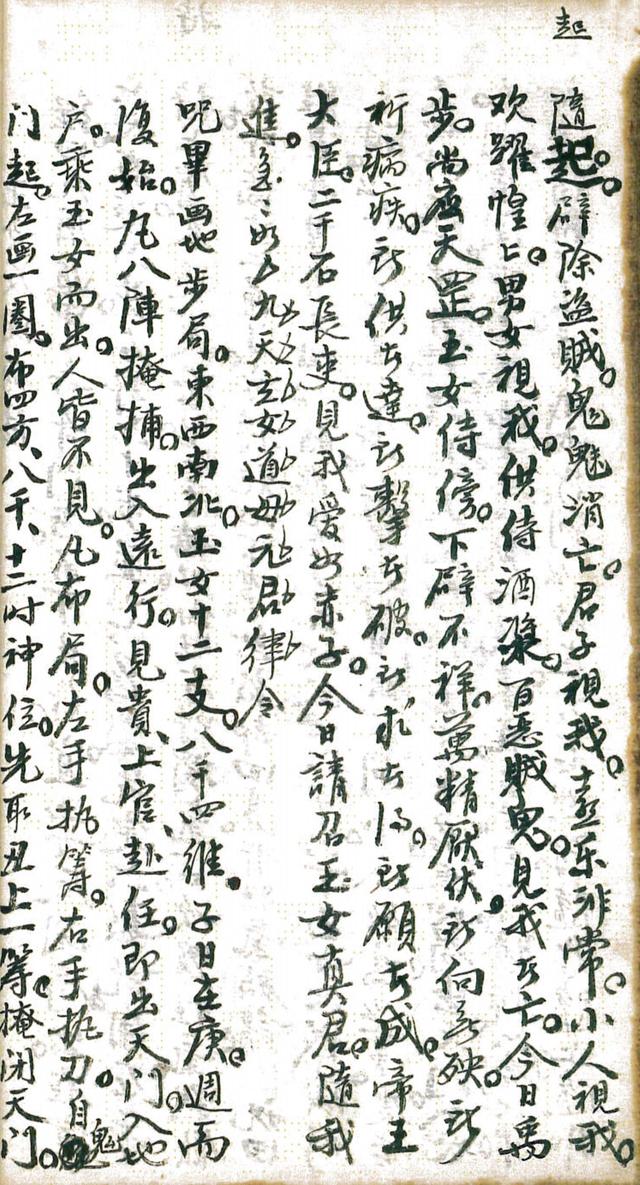 起
随起。辟除盗賊。鬼魅消亡。君子視我。喜乐非常。小人視我。
欢躍惶上。男女視我。供侍酒漿。百恶賊鬼。見我者亡。今日禹
步。尚应天罡。玉女侍傍。下辟不祥。萬精厭伏。所向無殃。所
祈病疾。所供者達。所擊者破。所求者得。所願者成。帝王
大臣。二千石長吏。見我爱如赤子。今日請召玉女真君。随我
進。急〻如九天玄女道母元君律令
咒畢画地步局。東西南北。玉女十二支。八千四維。子日在庚。週而
復始。凡八陣掩捕。出入遠行。見貴、上官、赴任。即出天门。入地
户。乘玉女而出。人皆不見。凡布局。左手执筹。右手执刀。自鬼
门起。左画一圈。布四方、八干、十二时神位。先取丑上一筹。掩闭天门。